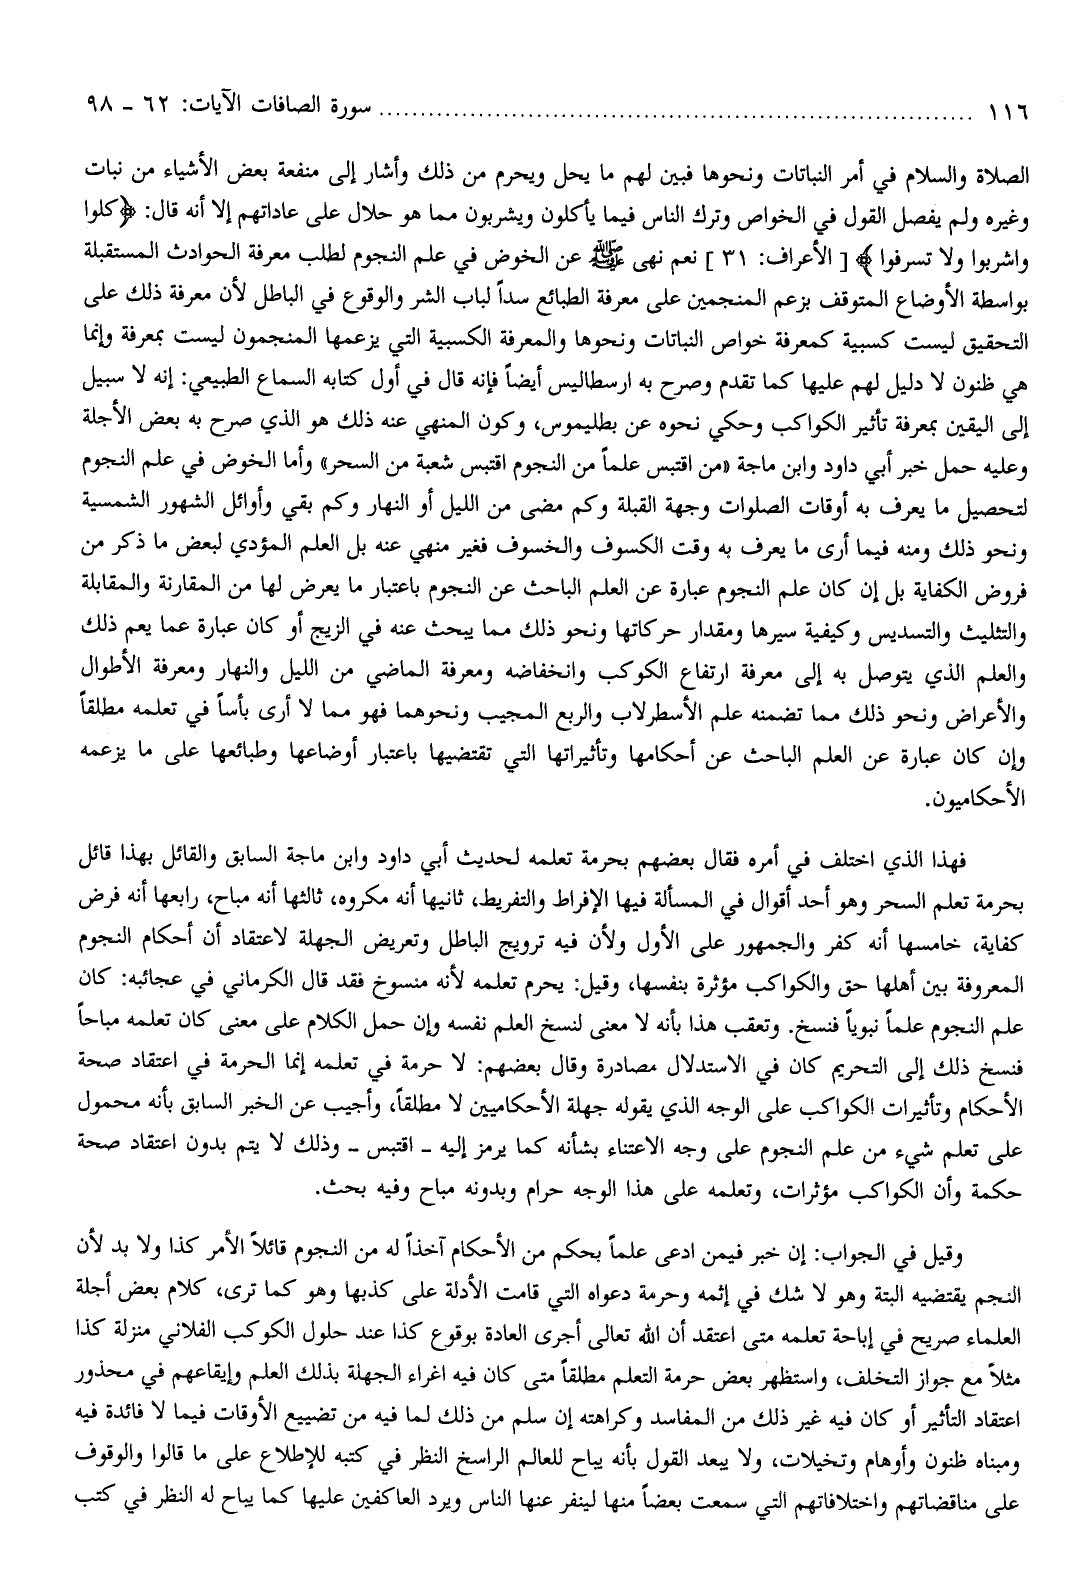 ١١٦ ........................................................................ سورة الصافات الآيات: ٦٢ - ٩٨
الصلاة والسلام في أمر النباتات ونحوها فبين لهم ما يحل ويحرم من ذلك وأشار إلى منفعة بعض الأشياء من نبات
وغيره ولم يفصل القول في الخواص وترك الناس فيما يأكلون ويشربون مما هو حلال على عاداتهم إلا أنه قال: ﴿كلوا
واشربوا ولا تسرفوا﴾ [ الأعراف: ٣١ ] نعم نهى ﷺ عن الخوض في علم النجوم لطلب معرفة الحوادث المستقبلة
بواسطة الأوضاع المتوقف بزعم المنجمين على معرفة الطبائع سداً لباب الشر والوقوع في الباطل لأن معرفة ذلك على
التحقيق ليست كسبية كمعرفة خواص النباتات ونحوها والمعرفة الكسبية التي يزعمها المنجمون ليست بمعرفة وإنما
هي ظنون لا دليل لهم عليها كما تقدم وصرح به ارسطاليس أيضاً فإنه قال في أول كتابه السماع الطبيعي: إنه لا سبيل
إلى اليقين بمعرفة تأثير الكواكب وحكي نحوه عن بطليموس، وكون المنهي عنه ذلك هو الذي صرح به بعض الأجلة
وعليه حمل خبر أبي داود وابن ماجة «من اقتبس علماً من النجوم اقتبس شعبة من السحر» وأما الخوض في علم النجوم
لتحصيل ما يعرف به أوقات الصلوات وجهة القبلة وكم مضى من الليل أو النهار وكم بقي وأوائل الشهور الشمسية
ونحو ذلك ومنه فيما أرى ما يعرف به وقت الكسوف والخسوف فغير منهي عنه بل العلم المؤدي لبعض ما ذكر من
فروض الكفاية بل إن كان علم النجوم عبارة عن العلم الباحث عن النجوم باعتبار ما يعرض لها من المقارنة والمقابلة
والتثليث والتسديس وكيفية سيرها ومقدار حركاتها ونحو ذلك مما يبحث عنه في الزيج أو كان عبارة عما يعم ذلك
والعلم الذي يتوصل به إلى معرفة ارتفاع الكوكب وانخفاضه ومعرفة الماضي من الليل والنهار ومعرفة الأطوال
والأعراض ونحو ذلك مما تضمنه علم الأسطرلاب والربع المجيب ونحوهما فهو مما لا أرى بأساً في تعلمه مطلقاً
وإن كان عبارة عن العلم الباحث عن أحكامها وتأثيراتها التي تقتضيها باعتبار أوضاعها وطبائعها على ما يزعمه
الأحكاميون.
فهذا الذي اختلف في أمره فقال بعضهم بحرمة تعلمه لحديث أبي داود وابن ماجة السابق والقائل بهذا قائل
بحرمة تعلم السحر وهو أحد أقوال في المسألة فيها الإفراط والتفريط، ثانيها أنه مكروه، ثالثها أنه مباح، رابعها أنه فرض
كفاية، خامسها أنه كفر والجمهور على الأول ولأن فيه ترويج الباطل وتعريض الجهلة لاعتقاد أن أحكام النجوم
المعروفة بين أهلها حق والكواكب مؤثرة بنفسها، وقيل: يحرم تعلمه لأنه منسوخ فقد قال الكرماني في عجائبه: كان
علم النجوم علماً نبوياً فنسخ. وتعقب هذا بأنه لا معنى لنسخ العلم نفسه وإن حمل الكلام على معنى كان تعلمه مباحاً
فنسخ ذلك إلى التحريم كان في الاستدلال مصادرة وقال بعضهم: لا حرمة في تعلمه إنما الحرمة في اعتقاد صحة
الأحكام وتأثيرات الكواكب على الوجه الذي يقوله جهلة الأحكاميين لا مطلقاً، وأجيب عن الخبر السابق بأنه محمول
على تعلم شيء من علم النجوم على وجه الاعتناء بشأنه كما يرمز إليه - اقتبس - وذلك لا يتم بدون اعتقاد صحة
حكمة وأن الكواكب مؤثرات، وتعلمه على هذا الوجه حرام وبدونه مباح وفيه بحث.
وقيل في الجواب: إن خبر فيمن ادعى علماً بحكم من الأحكام آخذاً له من النجوم قائلاً الأمر كذا ولا بد لأن
النجم يقتضيه البتة وهو لا شك في إثمه وحرمة دعواه التي قامت الأدلة على كذبها وهو كما ترى، كلام بعض أجلة
العلماء صريح في إباحة تعلمه متى اعتقد أن الله تعالى أجرى العادة بوقوع كذا عند حلول الكوكب الفلاني منزلة كذا
مثلاً مع جواز التخلف، واستظهر بعض حرمة التعلم مطلقاً متى كان فيه اغراء الجهلة بذلك العلم وإيقاعهم في محذور
اعتقاد التأثير أو كان فيه غير ذلك من المفاسد وكراهته إن سلم من ذلك لما فيه من تضييع الأوقات فيما لا فائدة فيه
ومبناه ظنون وأوهام وتخيلات، ولا يبعد القول بأنه يباح للعالم الراسخ النظر في كتبه للإطلاع على ما قالوا والوقوف
على مناقضاتهم واختلافاتهم التي سمعت بعضاً منها لينفر عنها الناس ويرد العاكفين عليها كما يباح له النظر في كتب